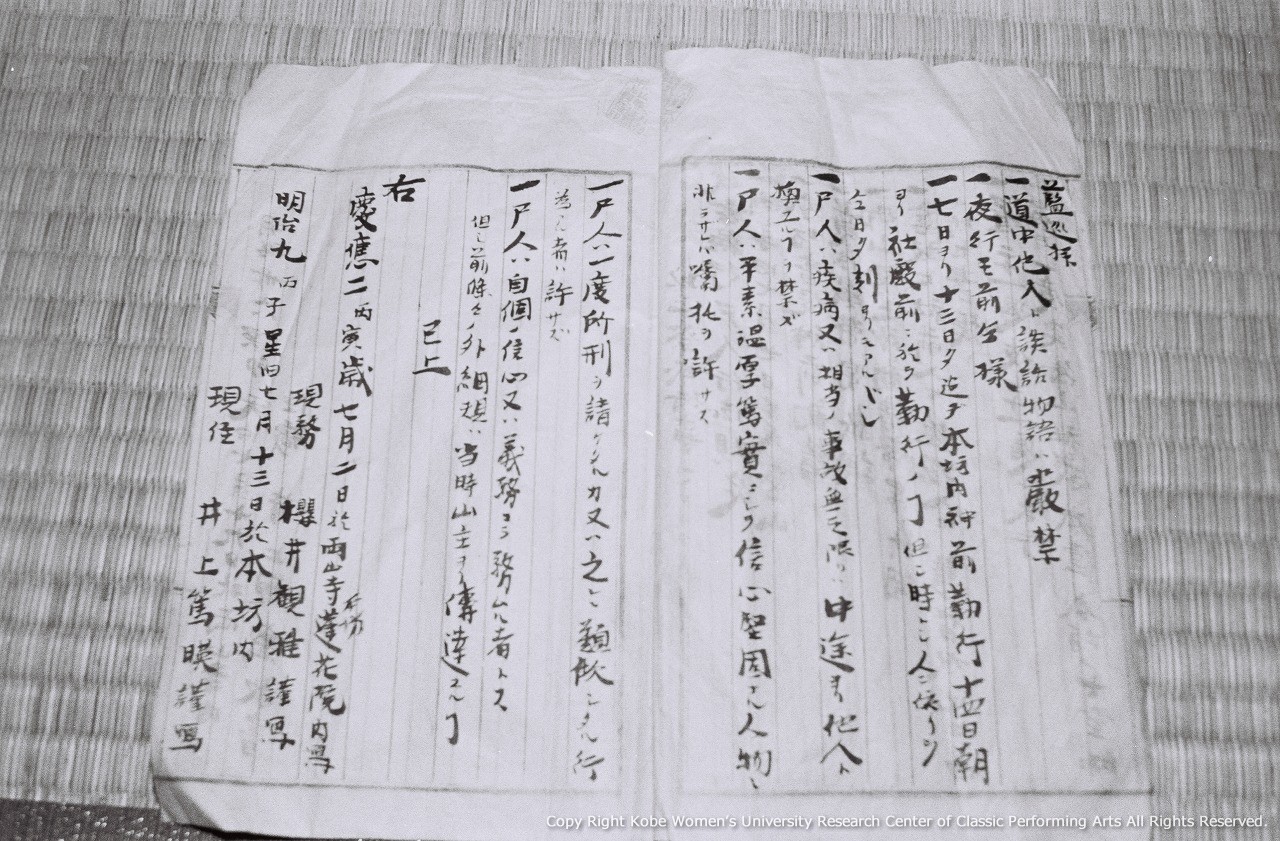 藍巡拝
一道中他人ト談話物語ハ嚴禁
一夜行モ前仝様
一七日ヨリ十三日夕迄ヲ本坊内神前勤行十四日朝
ヨリ社殿前ニ於テ勤行ノヿ但シ時ニ人ニ依リテ
仝日夕刻ヨリスルヿアルベシ
一尸人ハ疾病又ハ相当ノ事故無之限ハ中途ヨリ他人ト
換エルヿヲ禁ズ
一尸人ハ平素温厚篤實ニシテ信心堅固ナル人物ニ
非ラザレハ嘱托ヲ許サス
一尸人ハ一度所刑ヲ請ケタルカ又ハ之ニ類似シタル行
為アル者ハ許サズ
一尸人ハ自個ノ信心又ハ義務ヨリ務ムル者トス
但シ前條々ノ外細規ハ当時山主ヨリ傳達スルヿ
已上
右
慶應二丙寅歳七月二日於両山寺蓮花院内写
本坊
現務 櫻井観雅謹写
明治九丙子星旧七月十三日於本坊内
現住 井上篤暎謹写
Copy Right Kobe Women's University Research Center of Classic Performing Arts All Rights Reserved.